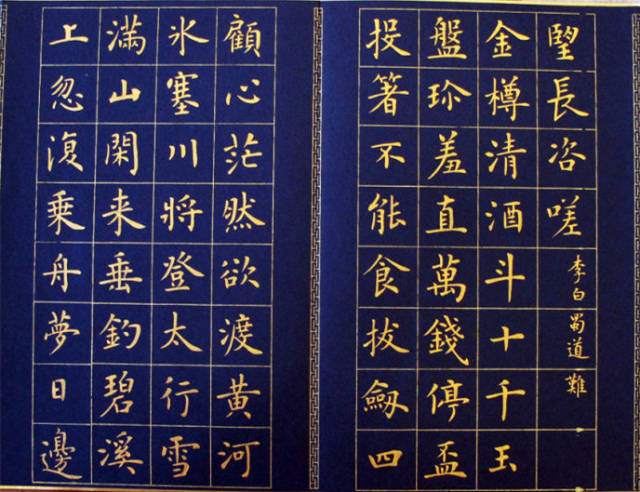 望長咨嗟 李白蜀道難
金樽清酒斗十千玉
盤珍羞直萬錢停盃
投箸不能食拔劍四
顧心茫然欲渡黄河
冰塞川將登太行雪
滿山閑来垂釣碧溪
上忽復乘舟夢日邊